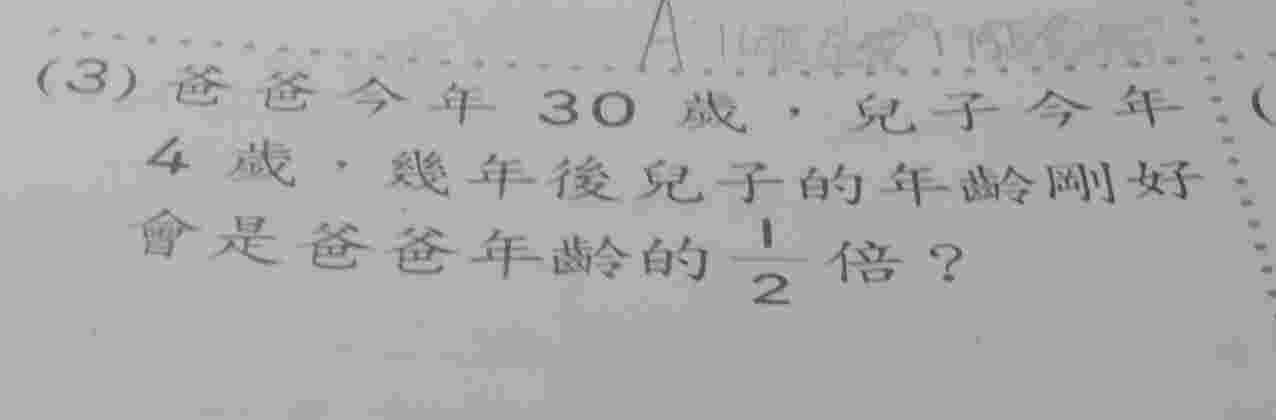 (3)爸爸今年30歲，兒子今年
4歲，幾年後兒子的年齡剛好
會是爸爸年齡的1/2倍？